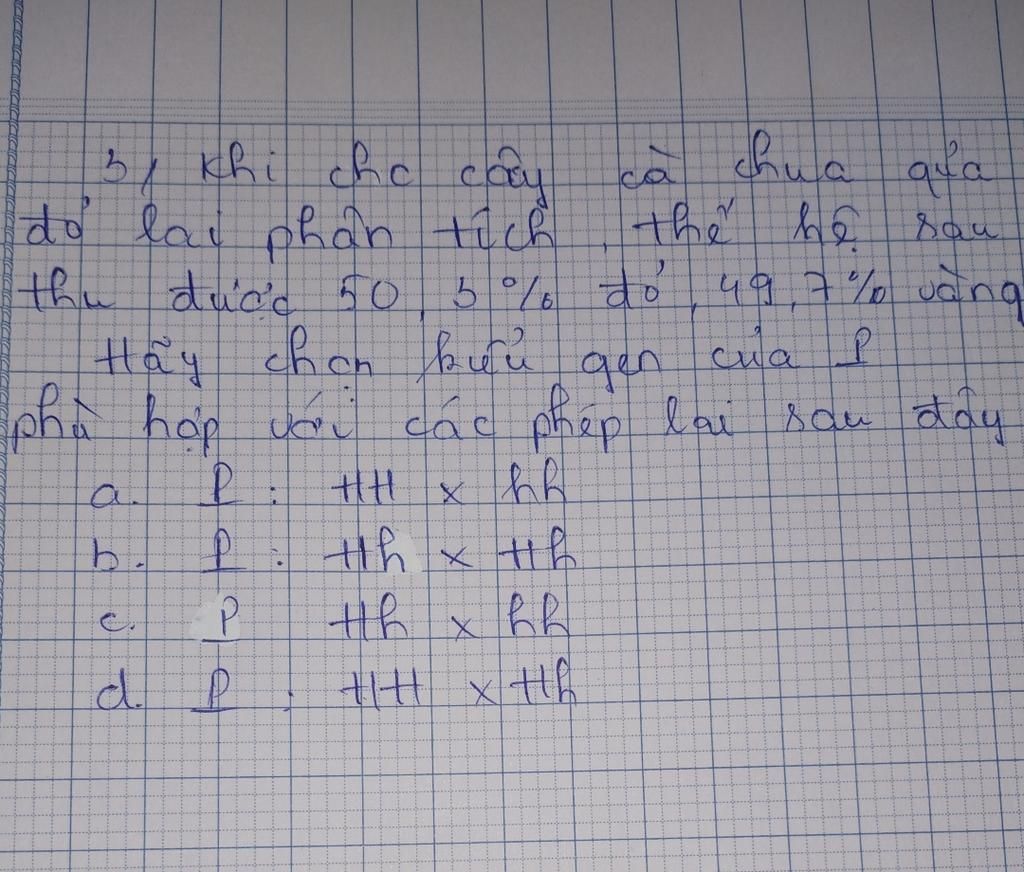 3, Khi cho cây cà chua quả
đỏ lai phân tích, thế hệ sau
thu được 50,3% đỏ, 49,7% vàng
Hãy chọn kiểu gen của P
phù hợp với các phép lai sau đây
a. P : HH x hh
b. P : Hh x Hh
c. P Hh x hh
d. P : HH x Hh